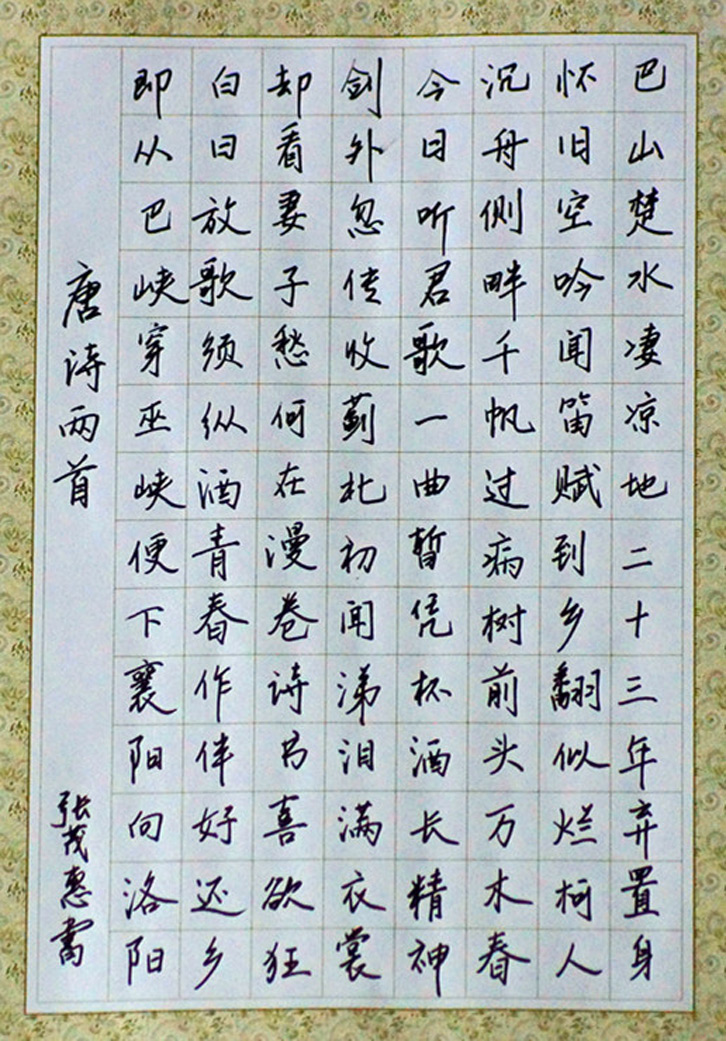 巴山楚水凄凉地二十三年弃置身
怀旧空吟闻笛赋到乡翻似烂柯人
沉舟侧畔千帆过病树前头万木春
今日听君歌一曲暂凭杯酒长精神
剑外忽传收蓟北初闻涕泪满衣裳
却看妻子愁何在漫卷诗书喜欲狂
白日放歌须纵酒青春作伴好还乡
即从巴峡穿巫峡便下襄阳向洛阳
唐诗两首
张茂惠书